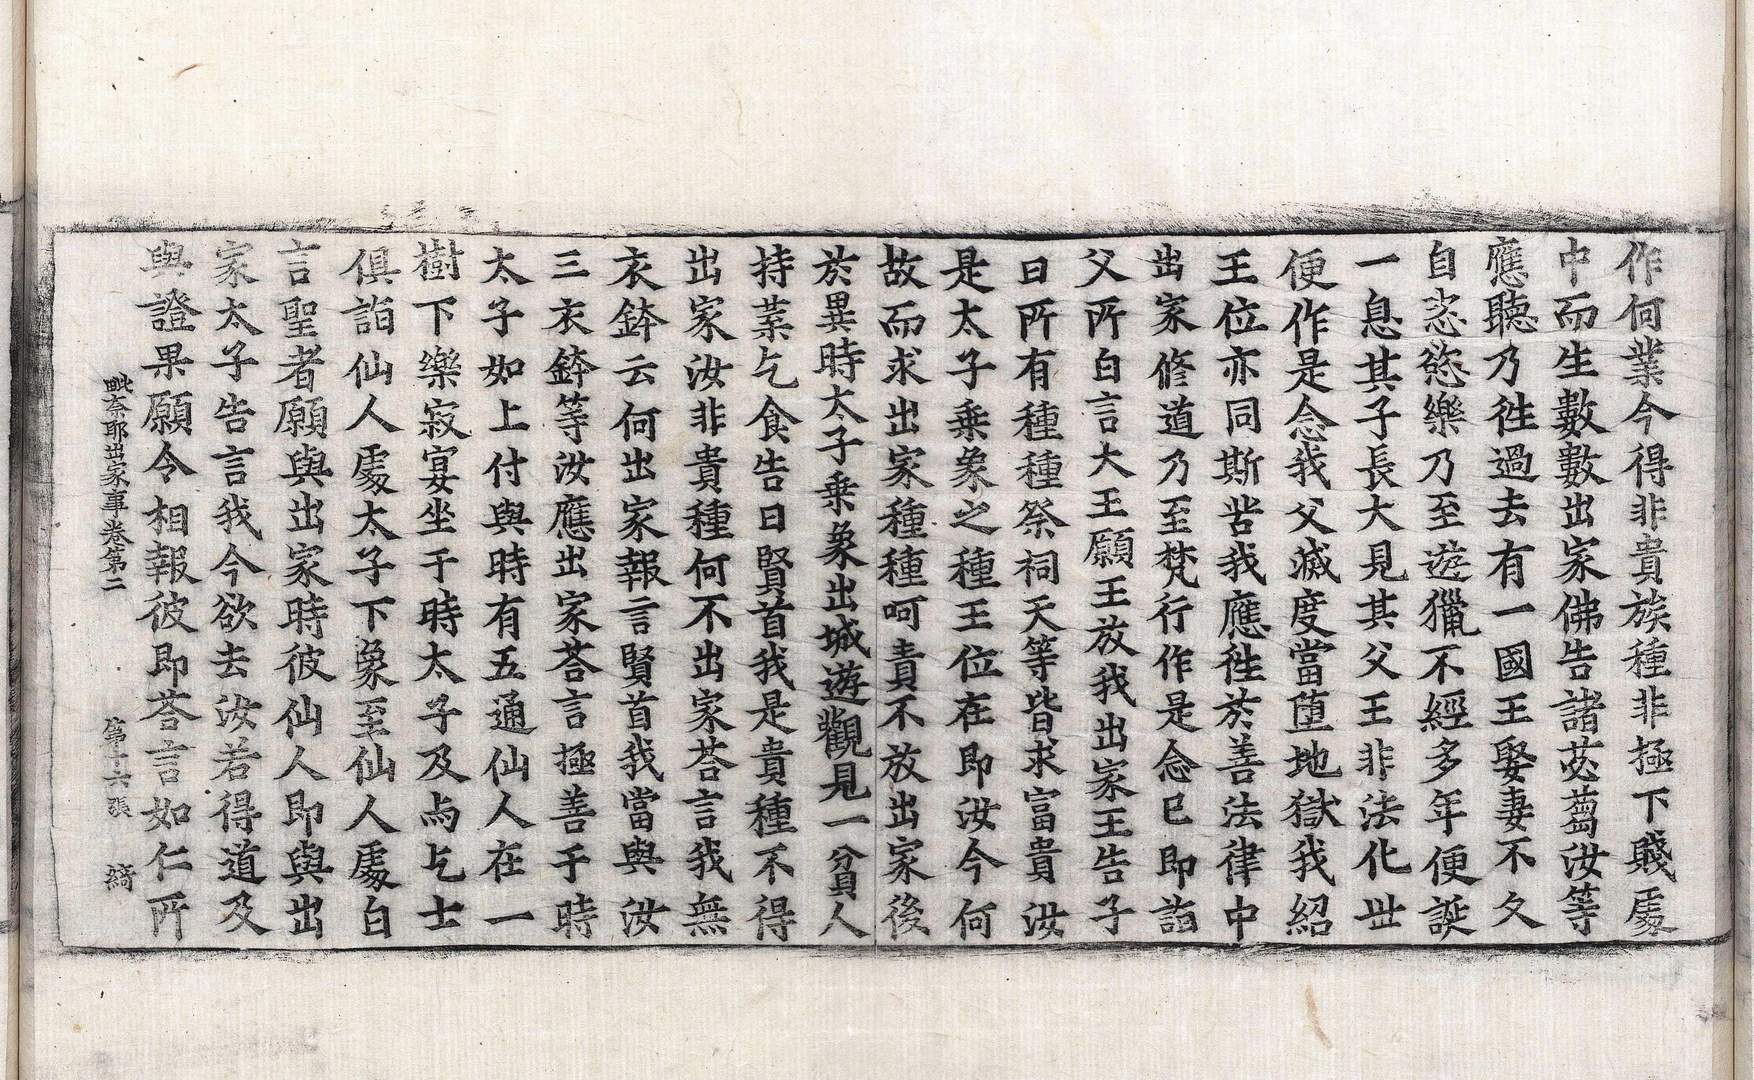 作何業今得非貴族種非極下賤處
中而生數數出家佛告諸苾蒭汝等
應聽乃徃過去有一國王娶妻不久
自恣慾樂乃至遊獵不經多年便誕
一息其子長大見其父王非法化世
便作是念我父滅度當墮地獄我紹
王位亦同斯咎我應徃於善法律中
出家修道乃至梵行作是念已即詣
父所白言大王願王放我出家王告子
曰所有種種祭祠天等皆求富貴汝
是太子乗象之種王位在即汝今何
故而求出家種種呵責不放出家後
於異時太子乗象出城遊觀見一貧人
持葉乞食告曰賢首我是貴種不得
出家汝非貴種何不出家荅言我無
衣鉢云何出家報言賢首我當與汝
三衣鉢等汝應出家荅言極善于時
太子如上付與時有五通仙人在一
樹下樂寂宴坐于時太子及与乞士
俱詣仙人處太子下象至仙人處白
言聖者願與出家時彼仙人即與出
家太子告言我今欲去汝若得道及
與證果願令相報彼即荅言如仁所
毗奈耶出家事卷第二 第十六張 綺